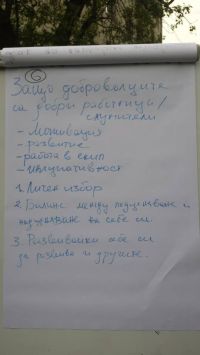 6
Защо доброволците
са добри работници/
служители
- Мотивация
- развитие
- работа в екип
- инициативност
1. Личен избор
2. Баланс между подценяване и
надценяване на себе си.
3. Развивайки себе си
да развива и другите.